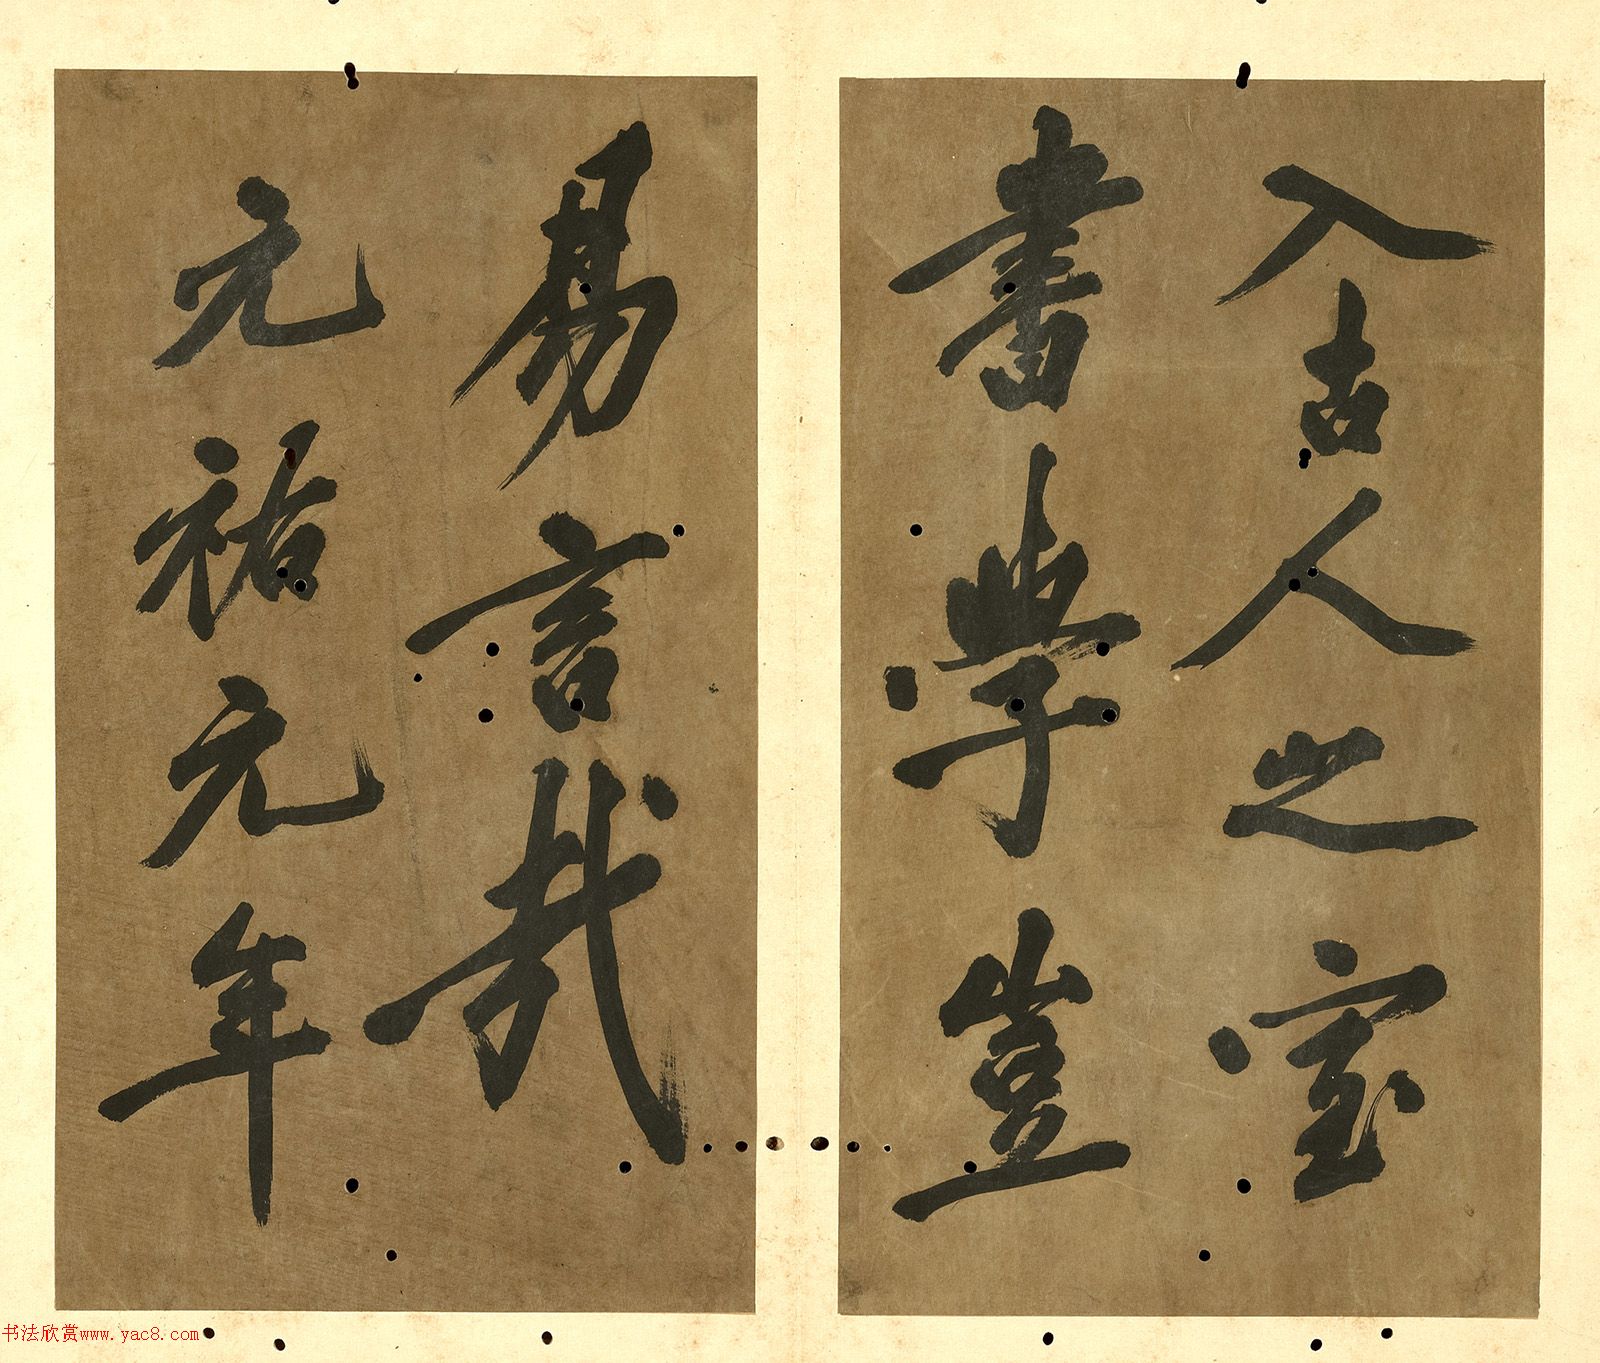 入古人之室
書學豈
易言哉
元祐元年
书法欣赏www.yac8.com